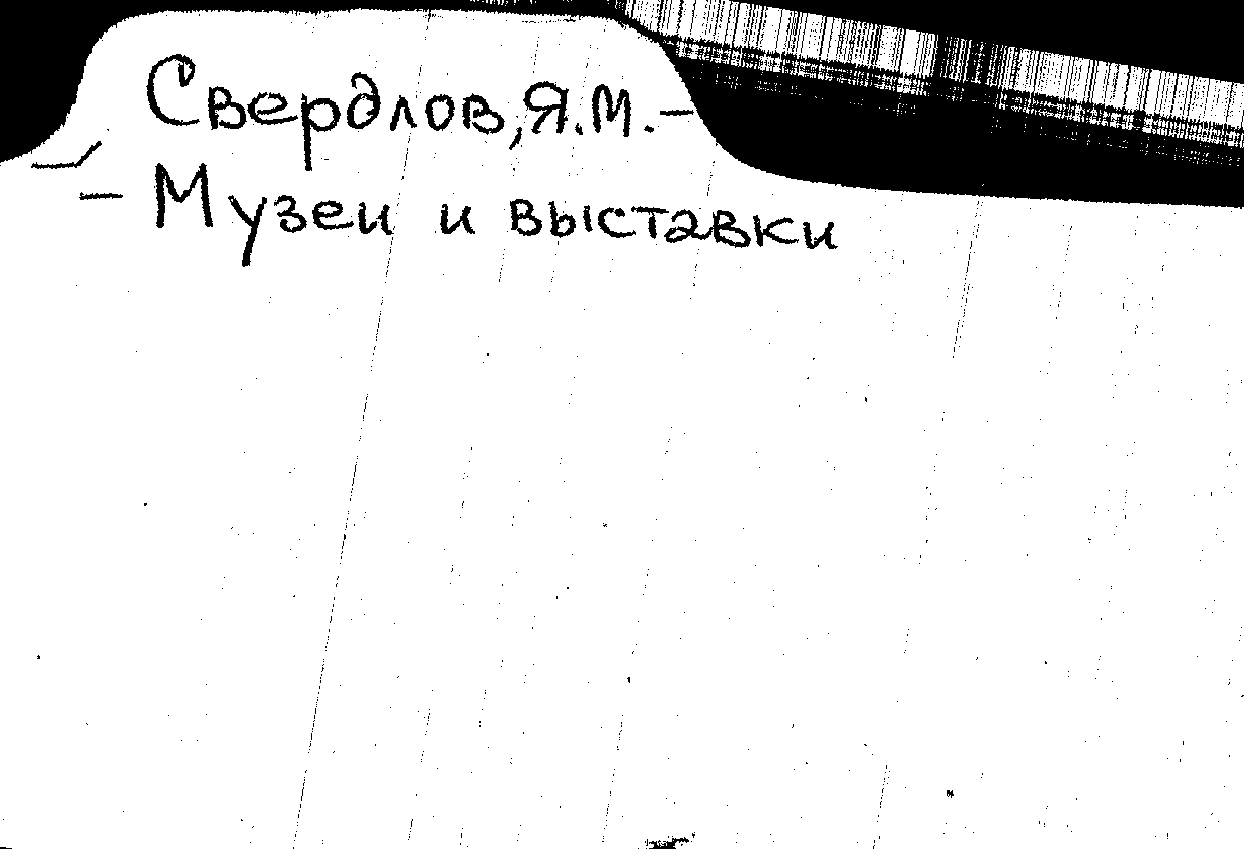 Свердлов, Я.М. –
– Музеи и выставки